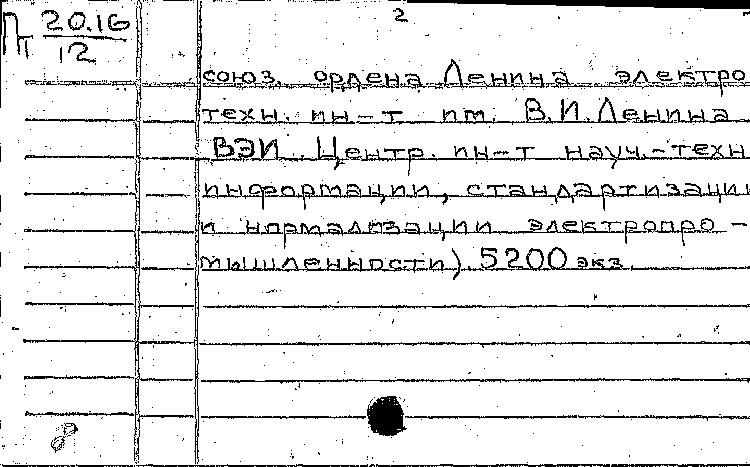 2
Пт 20.16
12
союз. ордена Ленина электро
техн. ин-т им. В.И.Ленина
ВЭИ. Центр. ин-т науч.-техн
информации, стандартизации
и нормализации электропро-
мышленности). 5200 экз.